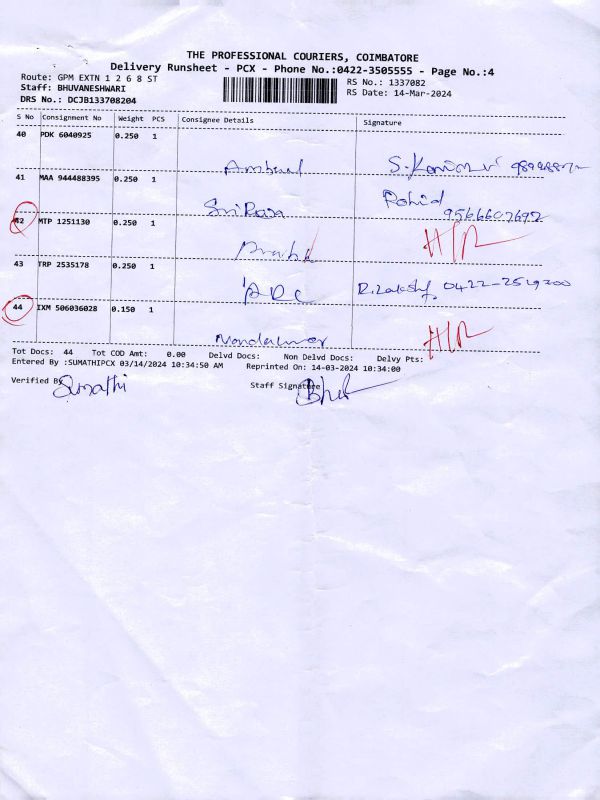 THE PROFESSIONAL COURIERS, COIMBATORE
Delivery Runsheet - PCX - Phone No.:0422-3505555 - Page No.:4
Route: GPM EXTN 1 2 6 8 ST RS No.: 1337082
Staff: BHUVANESHWARI RS Date: 14-Mar-2024
DRS No.: DCJB133708204
S No Consignment No Weight PCS Consignee Details Signature
40 PDK 6040925 0.250 1
41 MAA 944488395 0.250 1 Rohid
SriRam 9566607692
42 MTP 1251130 0.250 1 H/R
43 TRP 2535178 0.250 1
ARC
44 IXM 506036028 0.150 1 H/R
Tot Docs: 44 Tot COD Amt: 0.00 Delvd Docs: Non Delvd Docs: Delvy Pts:
Entered By :SUMATHIPCX 03/14/2024 10:34:50 AM Reprinted On: 14-03-2024 10:34:00
Verified By Sumathi Staff Signature